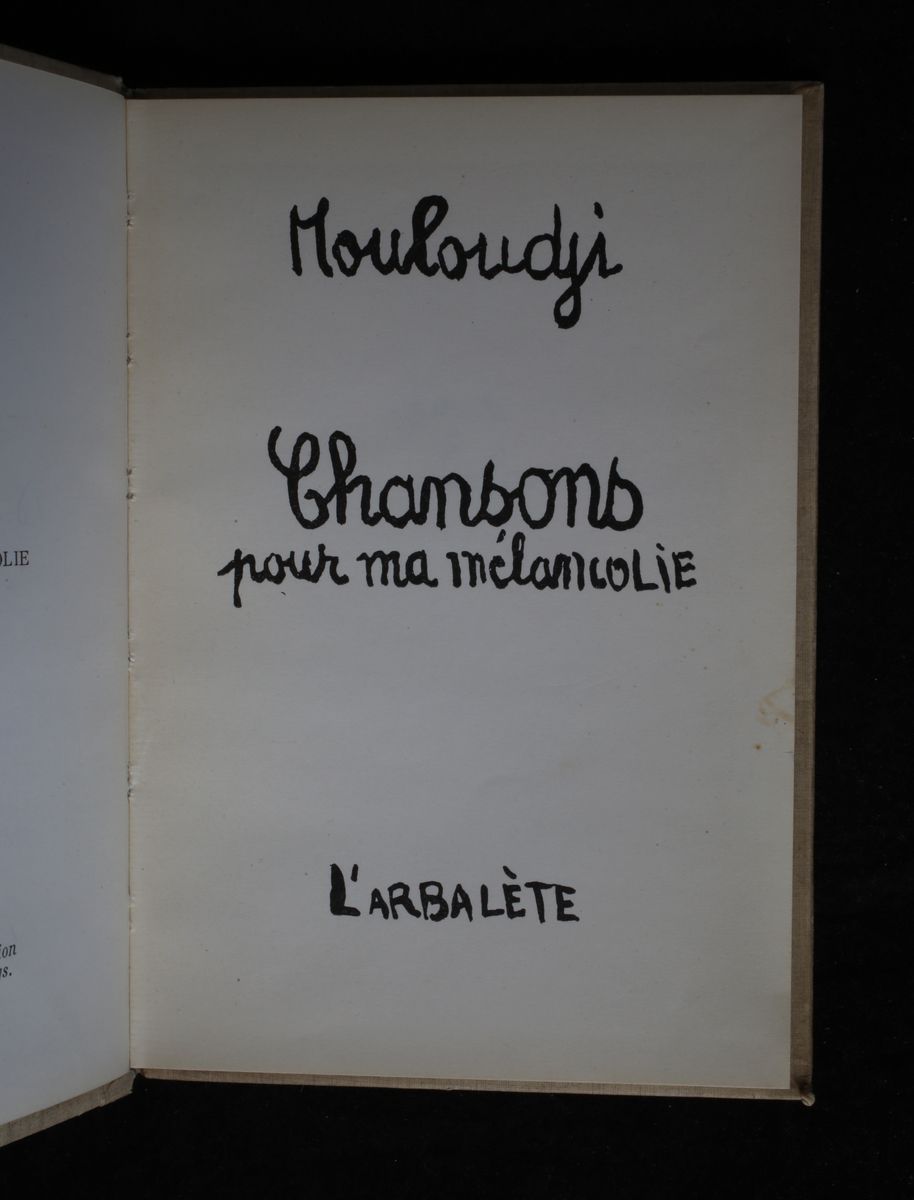 OLIE
ion
gs.
Mouloudji
Chansons
pour ma mélancoLiE
L'ARBALÈTE